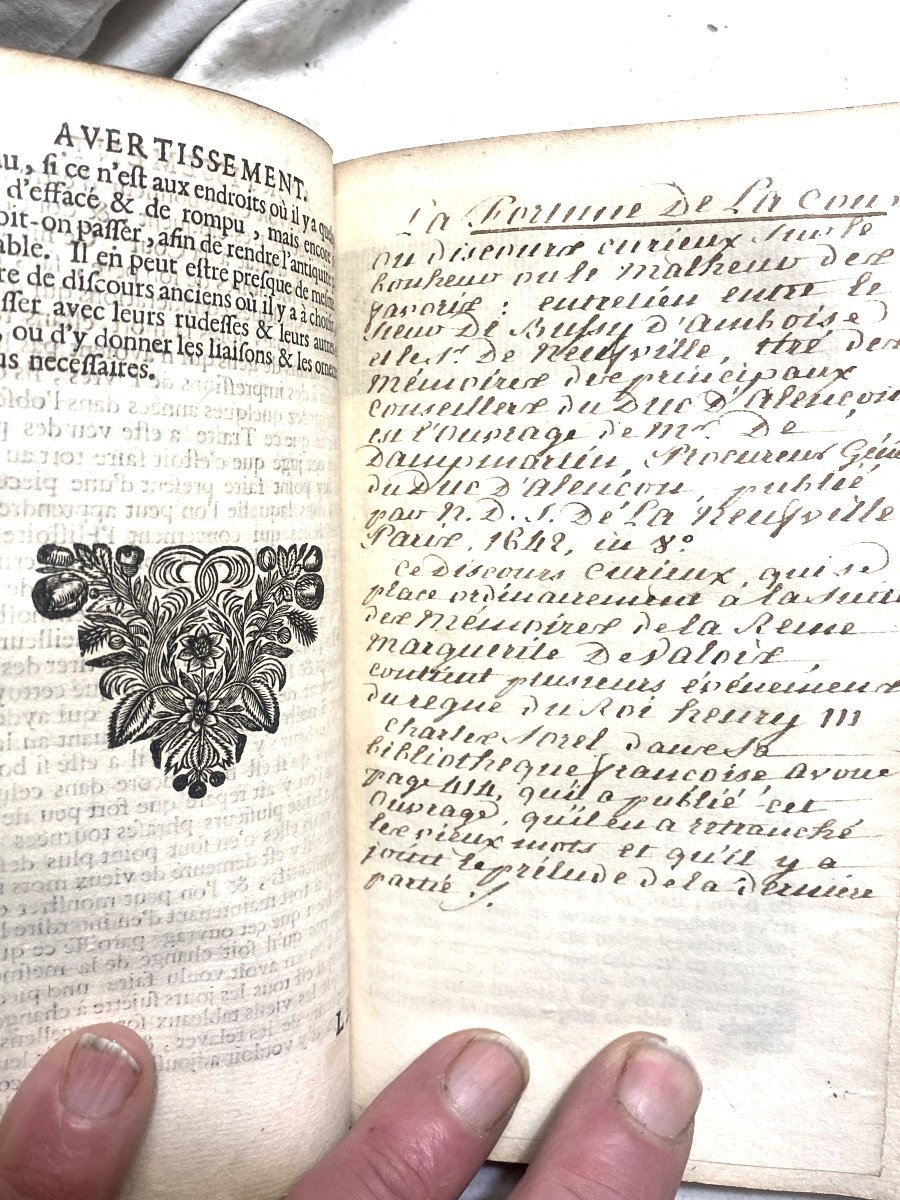 AVERTISSEMENT.
au, ſi ce n'eſt aux endroits où il y a quelq
d'effacé & de rompu, mais encore
oit-on paſſer, afin de rendre l'antiquité
able. Il en peut eſtre preſque de meſme
re de diſcours anciens où il y a à choiſir
ſſer avec leurs rudeſſes & leurs autres
, ou d'y donner les liaiſons & les orne
us neceſſaires.
La Fortune De La Cour
ou discours curieux sur le
bonheur ou le malheur des
favoris : entretien entre le
sieur De Bussy d'Amboise
et le Sr. De Neufville, tiré des
mémoires des principaux
conseillers du Duc D'alençon
est l'ouvrage de Mr. De
Dampmartin, Procureur Géné
du Duc D'alençon, publié
par N. D. S. De La Neufville
Paris, 1642, in 8°
Ce discours curieux, qui se
place ordinairement a la suite
des mémoires de la Reine
marguerite De Valois,
contient plusieurs événements
du regne du Roi henry III
Charles Sorel dans sa
bibliotheque françoise avoue
page 414, qu'il a publié cet
ouvrage, qu'il en a retranché
les vieux mots et qu'il y a
joint le prélude de la dernière
partie.